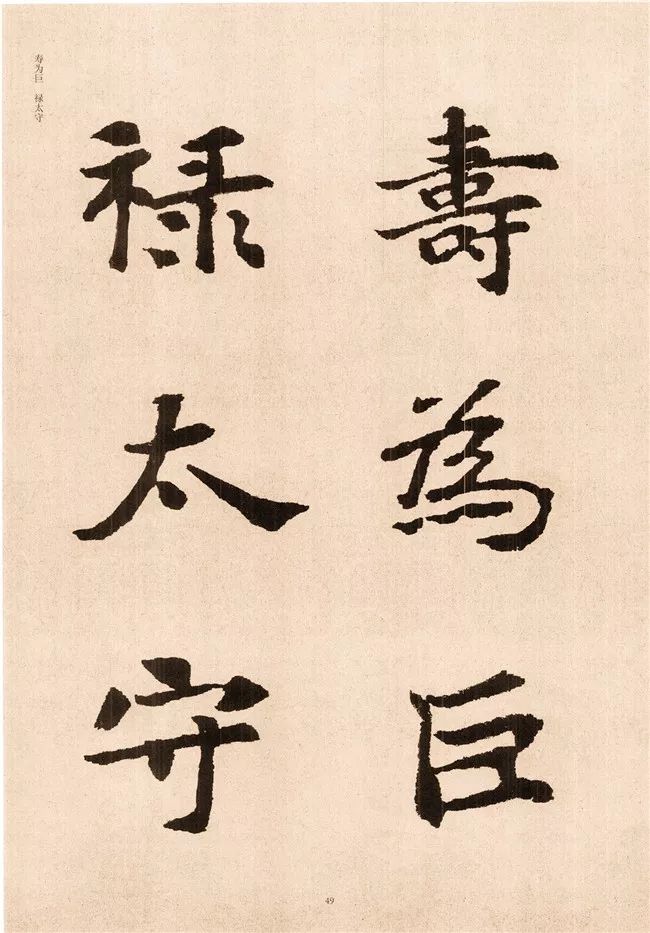 寿为巨 禄太守
壽為巨
禄太守
49